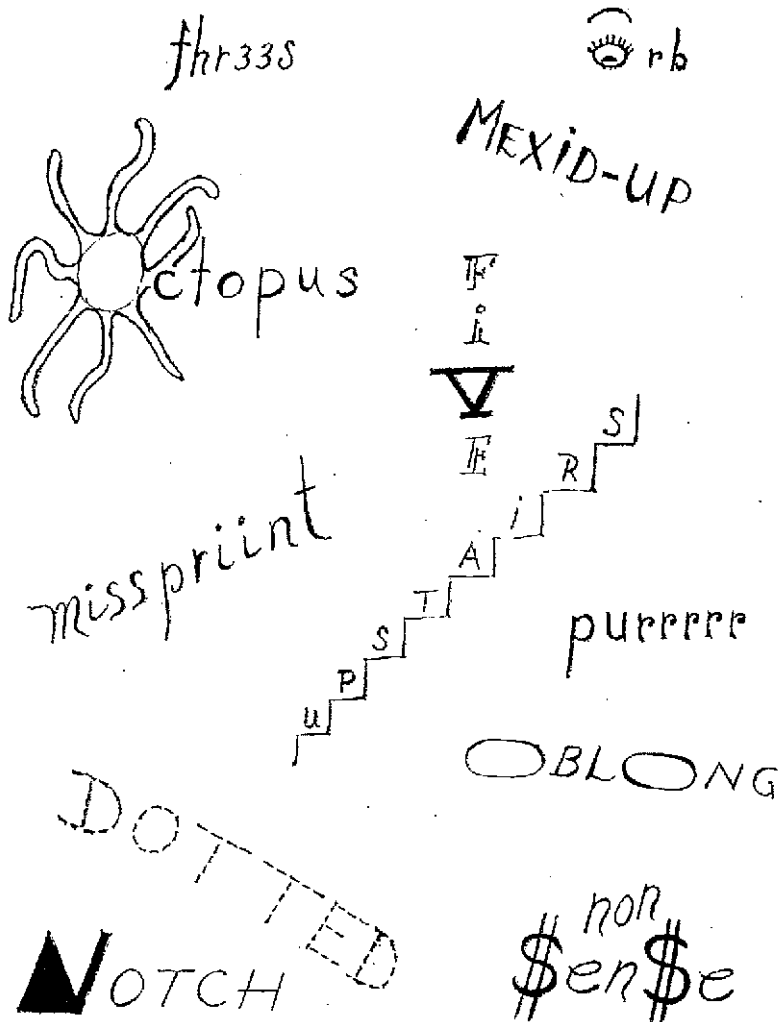 fhr33s
Orb
MEXiD-UP
Octopus
FiVE
misspriint
UPSTAiRS
purrrrr
OBLONG
DOTTED
NOTCH
non
$en$e